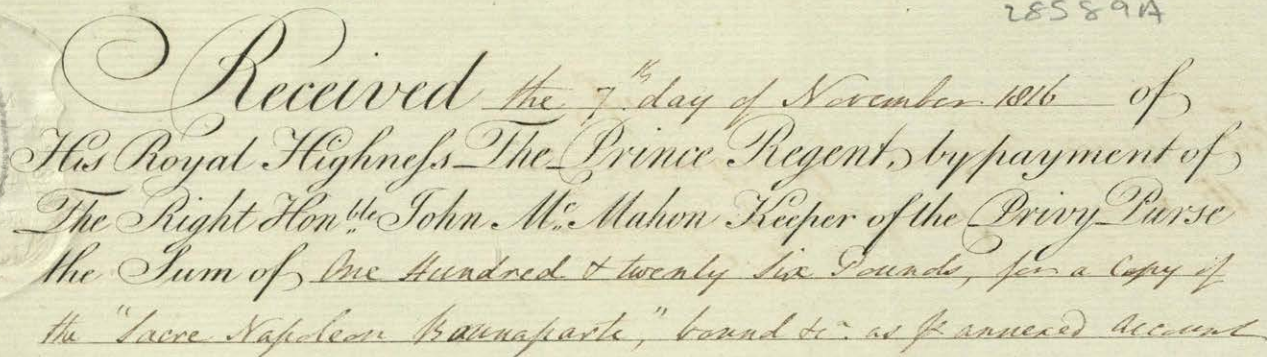 28589A
Received the 7th day of November 1816 of
His Royal Highneſs The Prince Regent, by payment of
The Right Honble John Mc Mahon Keeper of the Privy Purse
the Sum of One Hundred & twenty Six Pounds, for a Copy of
the "Sacre Napoleon Buonaparte", bound &c. as pr annexed Account